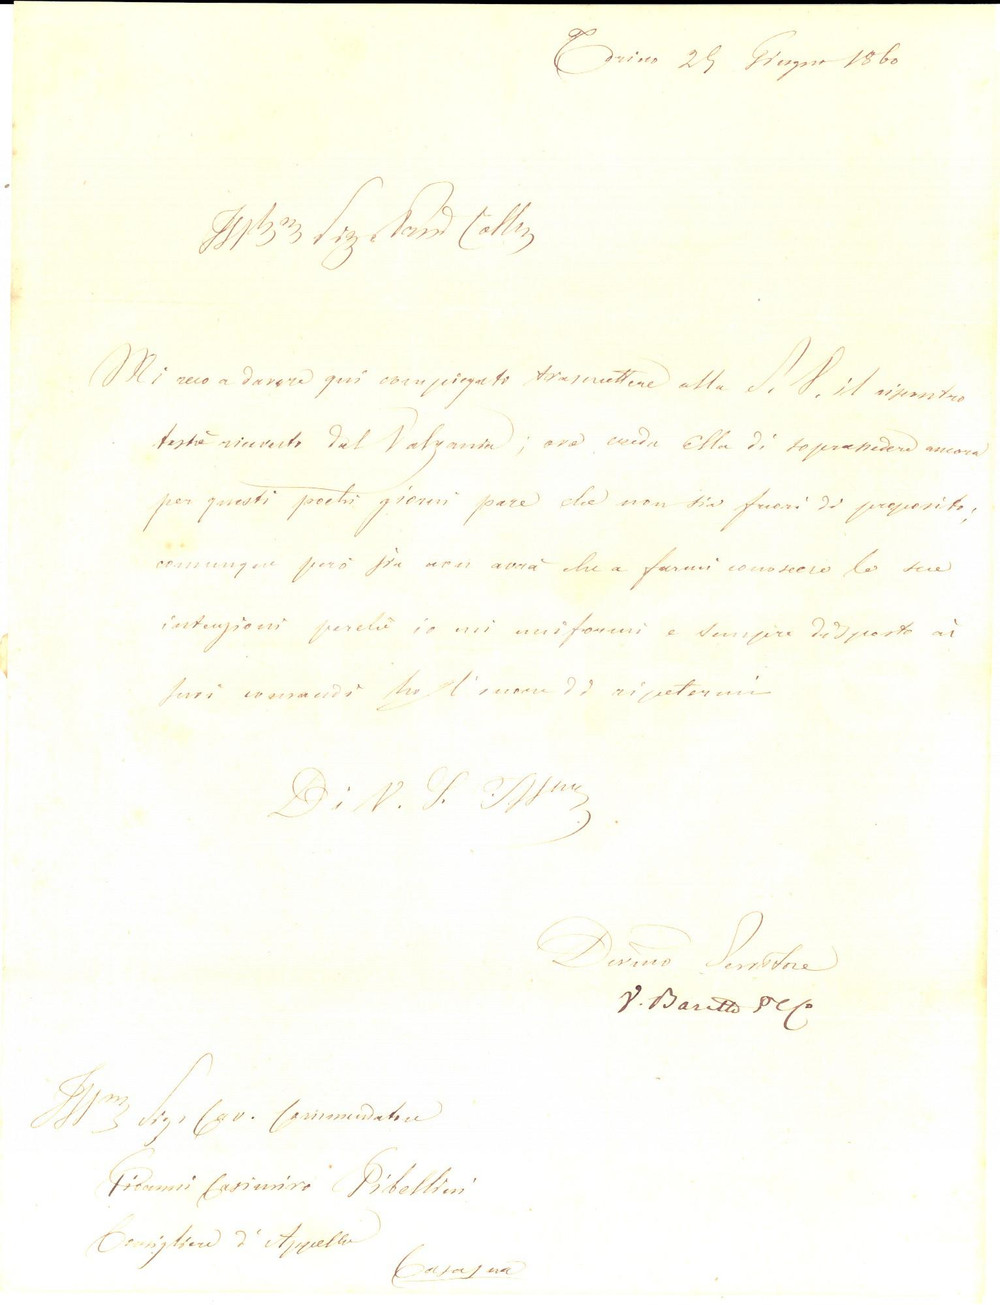 Torino 25 Giugno 1860
Sig. Pad. Coll.
Mi reco a dovere qui compiegato trasmettere alla S. V. il riscontro
testè ricevuto dal Valzania; ove creda Ella di soprassedere ancora
per questi pochi giorni pare che non sia fuori di proposito;
comunque però sia non avrà che a farmi conoscere le sue
intenzioni perchè io mi uniformi e sempre disposto ai
suoi comandi ho l'onore di ripetermi
Di V. S. Ill.ma
Devmo Servitore
V. Baretta
Ill.mo Sig. Cav. Commendatore
Giovanni Casimiro Gibellini
Consigliere d'Appello